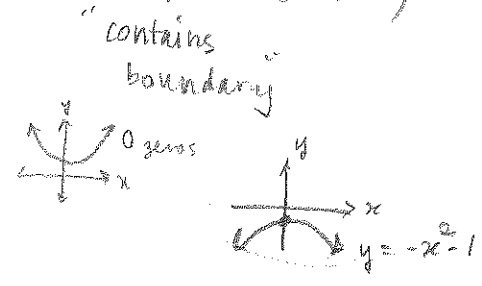 "contains
boundary"
y
0 zeros
x
y
x
y = -x² - 1